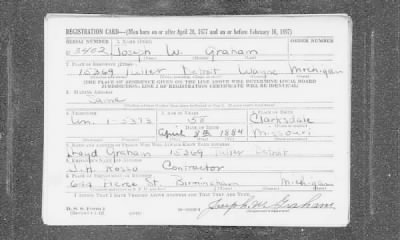 REGISTRATION CARD—(Men born on or after April 28, 1877 and on or before February 16, 1897)
SERIAL NUMBER 1. NAME (Print) ORDER NUMBER
Joseph W. Graham
2. PLACE OF RESIDENCE (Print)
15369 Fuller Detroit Wayne Michigan
[THE PLACE OF RESIDENCE GIVEN ON THE LINE ABOVE WILL DETERMINE LOCAL BOARD
JURISDICTION; LINE 2 OF REGISTRATION CERTIFICATE WILL BE IDENTICAL]
3. MAILING ADDRESS
Same
4. TELEPHONE 5. AGE IN YEARS 6. PLACE OF BIRTH
Un. 1-5373 58 Clarksdale
DATE OF BIRTH
April 8th 1884 Missouri
7. NAME AND ADDRESS OF PERSON WHO WILL ALWAYS KNOW YOUR ADDRESS
Lloyd Graham 15369 Fuller Detroit
8. EMPLOYER'S NAME AND ADDRESS
Contractor
9. PLACE OF EMPLOYMENT OR BUSINESS
St. Birmingham Michigan
I AFFIRM THAT I HAVE VERIFIED ABOVE ANSWERS AND THAT THEY ARE TRUE.
D. S. S. Form 1
Joseph W Graham